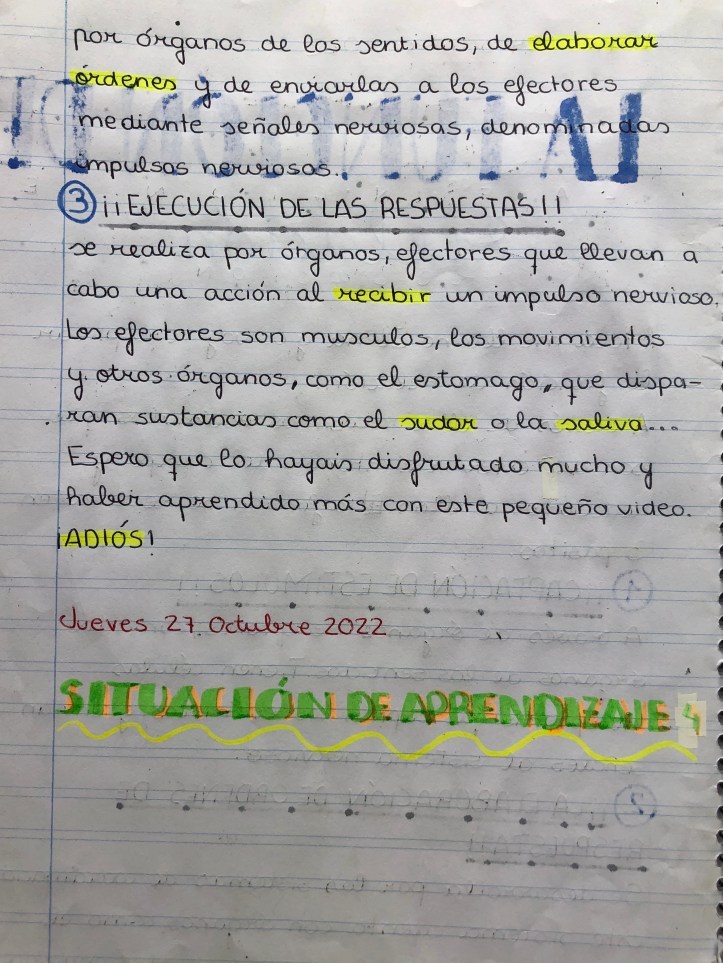 por órganos de los sentidos, de elaborar
órdenes y de enviarlas a los efectores
mediante señales nerviosas, denominadas
impulsos nerviosos.
③ ¡¡EJECUCIÓN DE LAS RESPUESTAS!!
se realiza por órganos, efectores que llevan a
cabo una acción al recibir un impulso nervioso.
Los efectores son musculos, los movimientos
y otros órganos, como el estomago, que dispa-
ran sustancias como el sudor o la saliva...
Espero que lo hayais disfrutado mucho y
haber aprendido más con este pequeño video.
¡ADIÓS!
Jueves 27 Octubre 2022
SITUACIÓN DE APRENDIZAJE 4